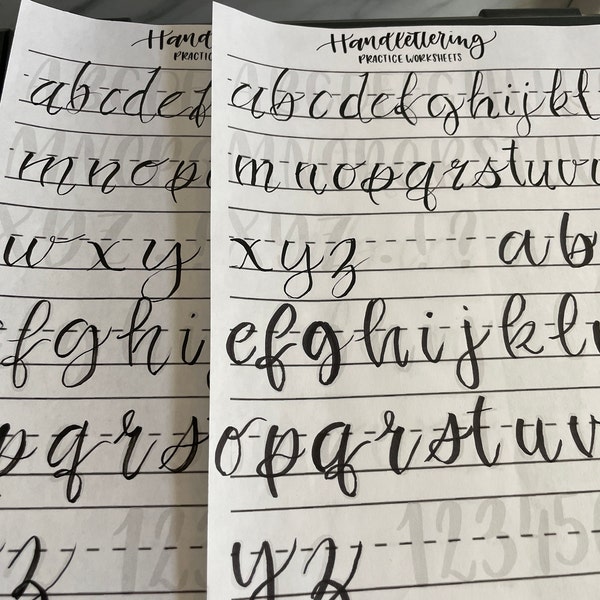 Hand
PRACTIC
abcdef
mnop
w x y
efghi
pqrs
yz
Handlettering
PRACTICE WORKSHEETS
abcdefghijkl
mnopqrstuv
xyz ab
efghijkl
opqrstuv
yz